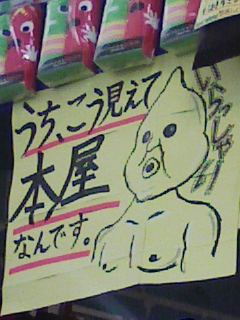 うち、こう見えて
本屋
なんです。
いらっしゃい